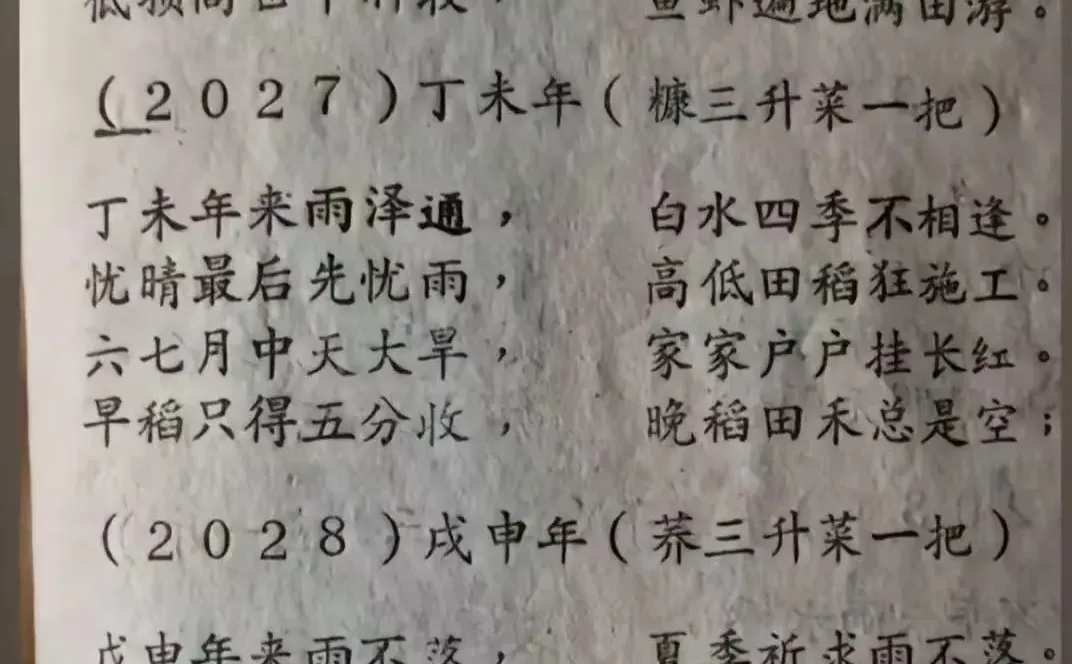 鱼虾遍地满田游。
(2027)丁未年(糠三升菜一把)
丁未年来雨泽通，　白水四季不相逢。
忧晴最后先忧雨，　高低田稻狂施工。
六七月中天大旱，　家家户户挂长红。
早稻只得五分收，　晚稻田禾总是空；
(2028)戊申年(荞三升菜一把)
戊申年来雨不落，　夏季祈求雨不落。